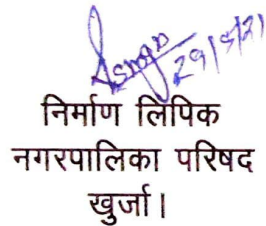 29/5/21
निर्माण लिपिक
नगरपालिका परिषद
खुर्जा।